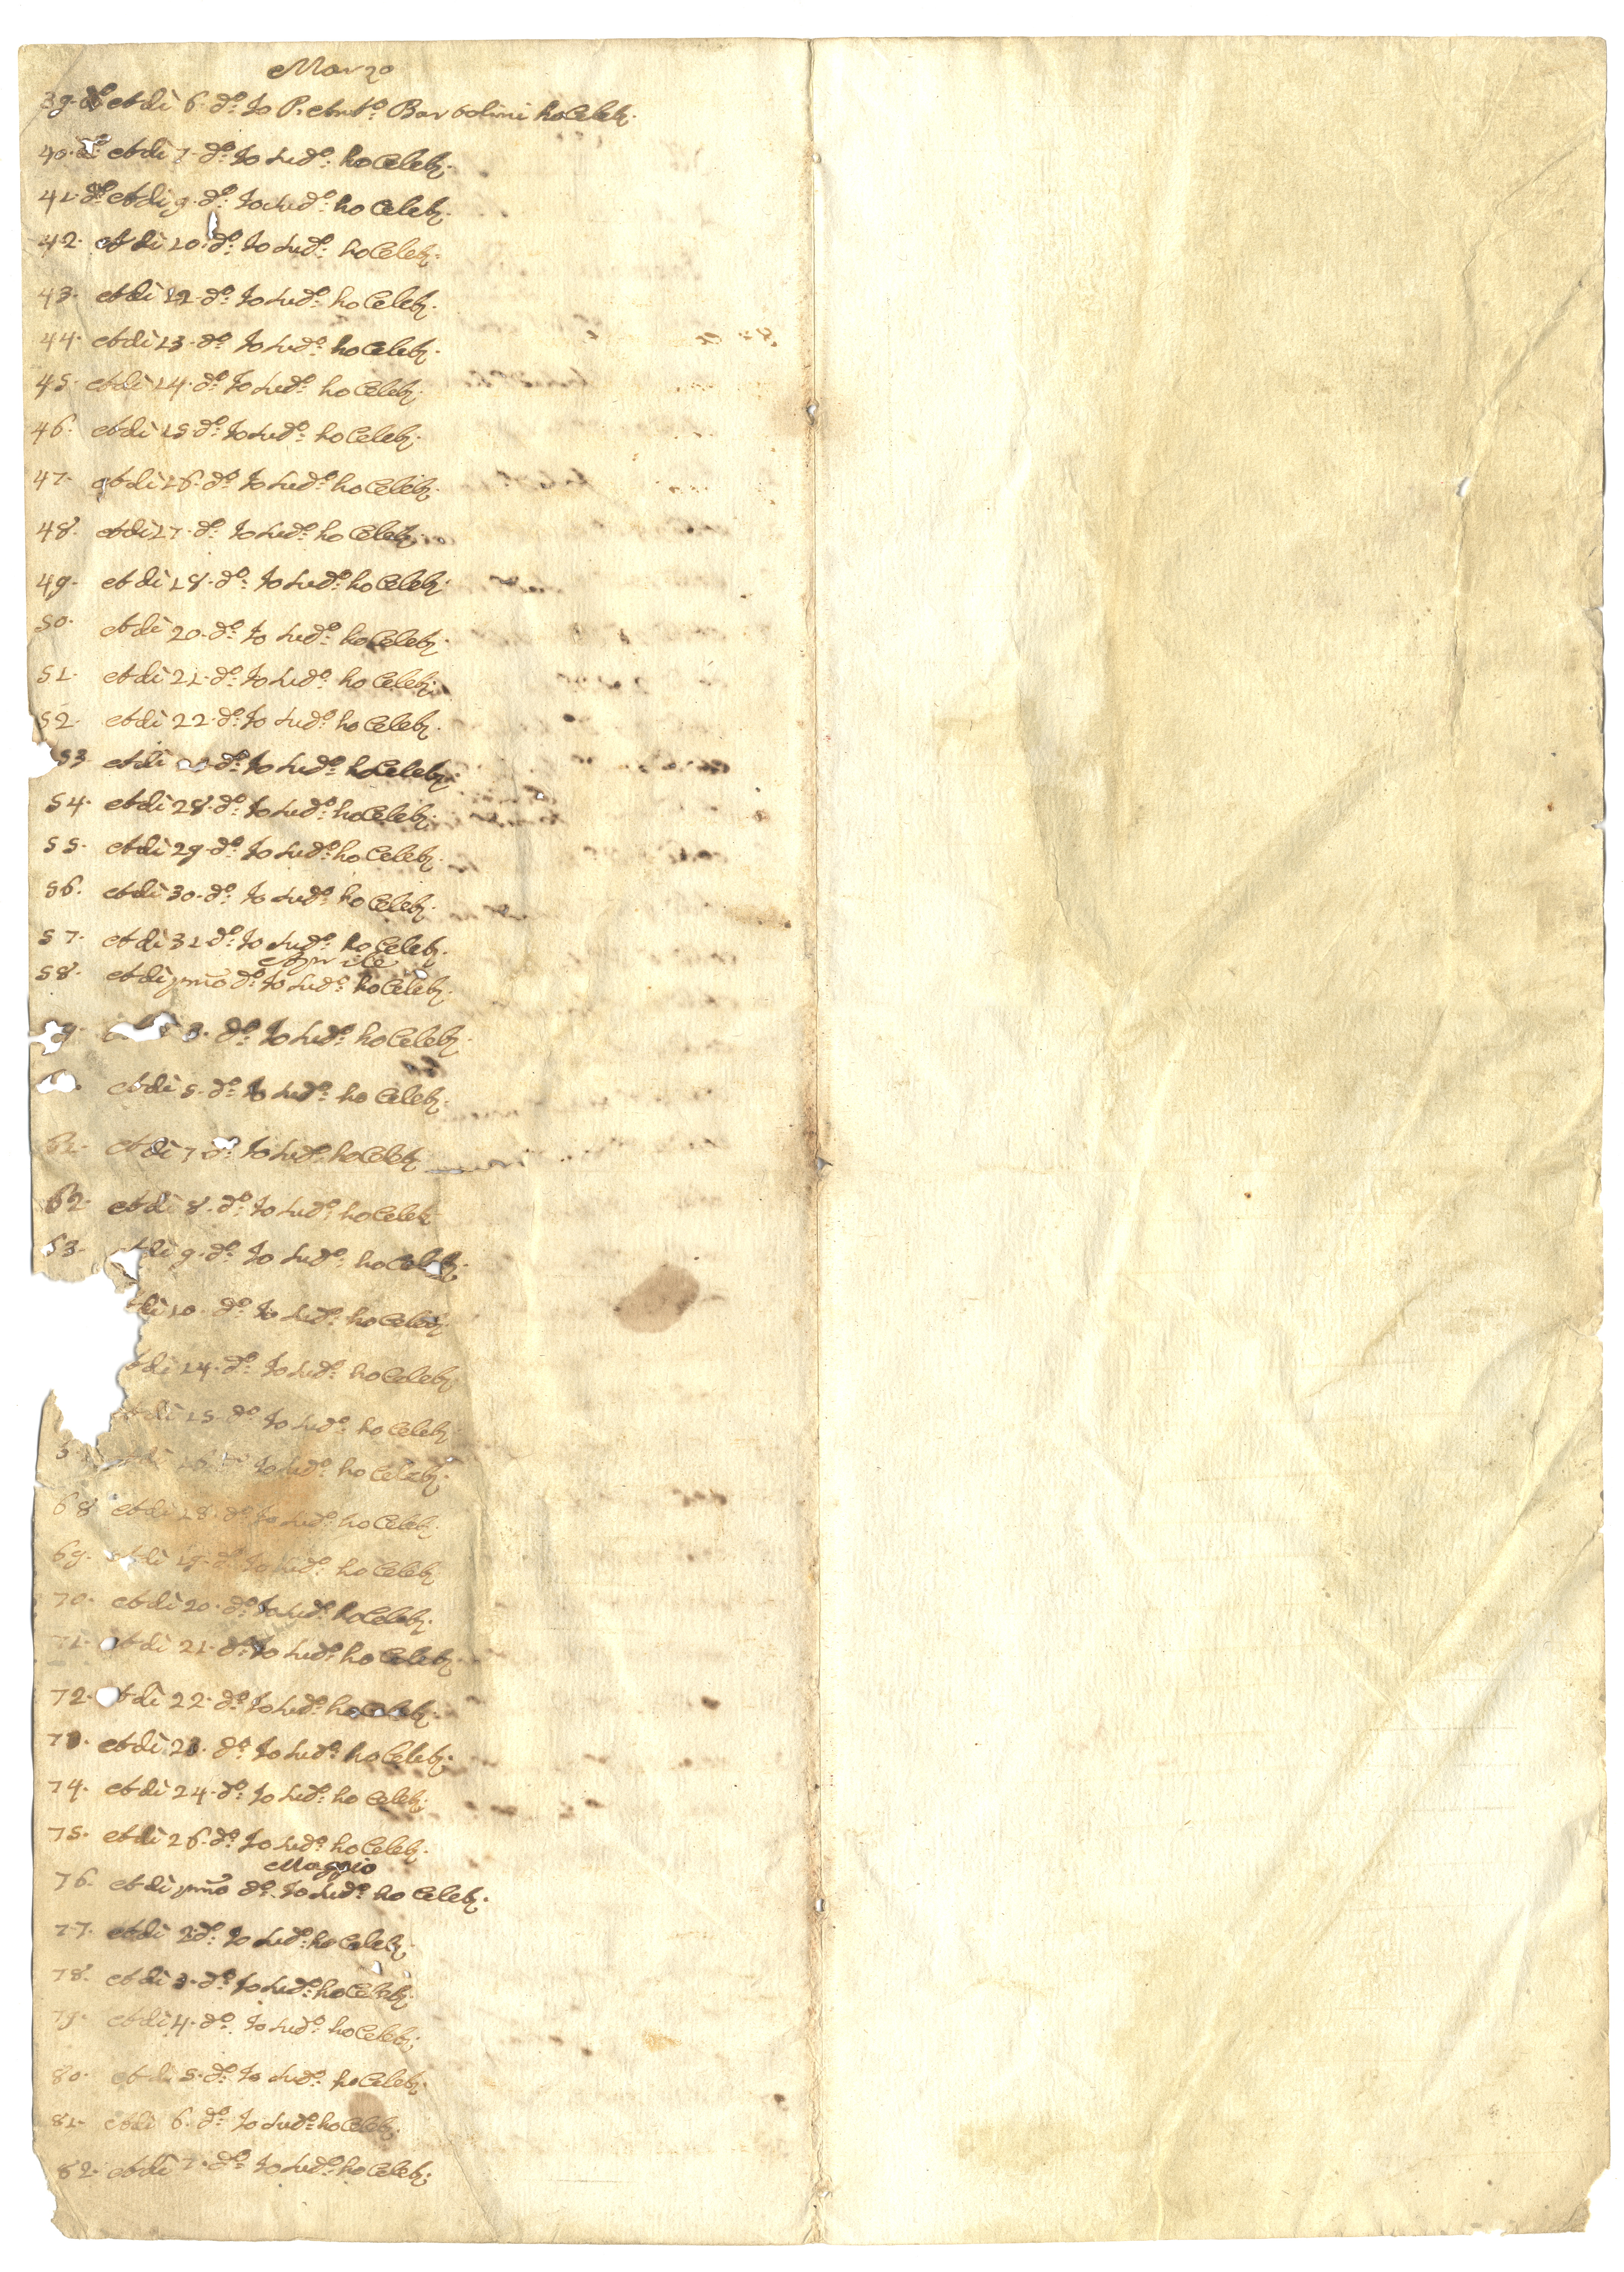 Marzo
39. d.º et di 6. d.º Io P. Ant.º Bartolini ho Celeb.
40. d.º et di 7. d.º Io sud.º ho Celeb.
41. d.º et di 9. d.º Io sud.º ho Celeb.
42. et di 10. d.º Io sud.º ho Celeb.
43. et di 12. d.º Io sud.º ho Celeb.
44. et di 13. d.º Io sud.º ho Celeb.
45. et di 14. d.º Io sud.º ho Celeb.
46. et di 15. d.º Io sud.º ho Celeb.
47. et di 16. d.º Io sud.º ho Celeb.
48. et di 17. d.º Io sud.º ho Celeb.
49. et di 18. d.º Io sud.º ho Celeb.
50. et di 20. d.º Io sud.º ho Celeb.
51. et di 21. d.º Io sud.º ho Celeb.
52. et di 22. d.º Io sud.º ho Celeb.
53. et di d.º Io sud.º ho Celeb.
54. et di 28. d.º Io sud.º ho Celeb.
55. et di 29. d.º Io sud.º ho Celeb.
56. et di 30. d.º Io sud.º ho Celeb.
57. et di 31. d.º Io sud.º ho Celeb.
Aprile
58. et di pmo d.º Io sud.º ho Celeb.
9. 3. d.º Io sud.º ho Celeb.
et di 5. d.º Io sud.º ho Celeb.
61. et di 7. d.º Io sud.º ho Celeb.
62. et di 8. d.º Io sud.º ho Celeb.
63. et di 9. d.º Io sud.º ho Celeb.
di 10. d.º Io sud.º ho Celeb.
t di 14. d.º Io sud.º ho Celeb.
et di 15. d.º Io sud.º ho Celeb.
6 et di 16. d.º Io sud.º ho Celeb.
68. et di 18. d.º Io sud.º ho Celeb.
69. et di 19. d.º Io sud.º ho Celeb.
70. et di 20. d.º Io sud.º ho Celeb.
71. et di 21. d.º Io sud.º ho Celeb.
72. et di 22. d.º Io sud.º ho Celeb.
73. et di 23. d.º Io sud.º ho Celeb.
74. et di 24. d.º Io sud.º ho Celeb.
75. et di 26. d.º Io sud.º ho Celeb.
Maggio
76. et di pmo d.º Io sud.º ho Celeb.
77. et di 2. d.º Io sud.º ho Celeb.
78. et di 3. d.º Io sud.º ho Celeb.
79. et di 4. d.º Io sud.º ho Celeb.
80. et di 5. d.º Io sud.º ho Celeb.
81. et di 6. d.º Io sud.º ho Celeb.
82. et di 7. d.º Io sud.º ho Celeb.